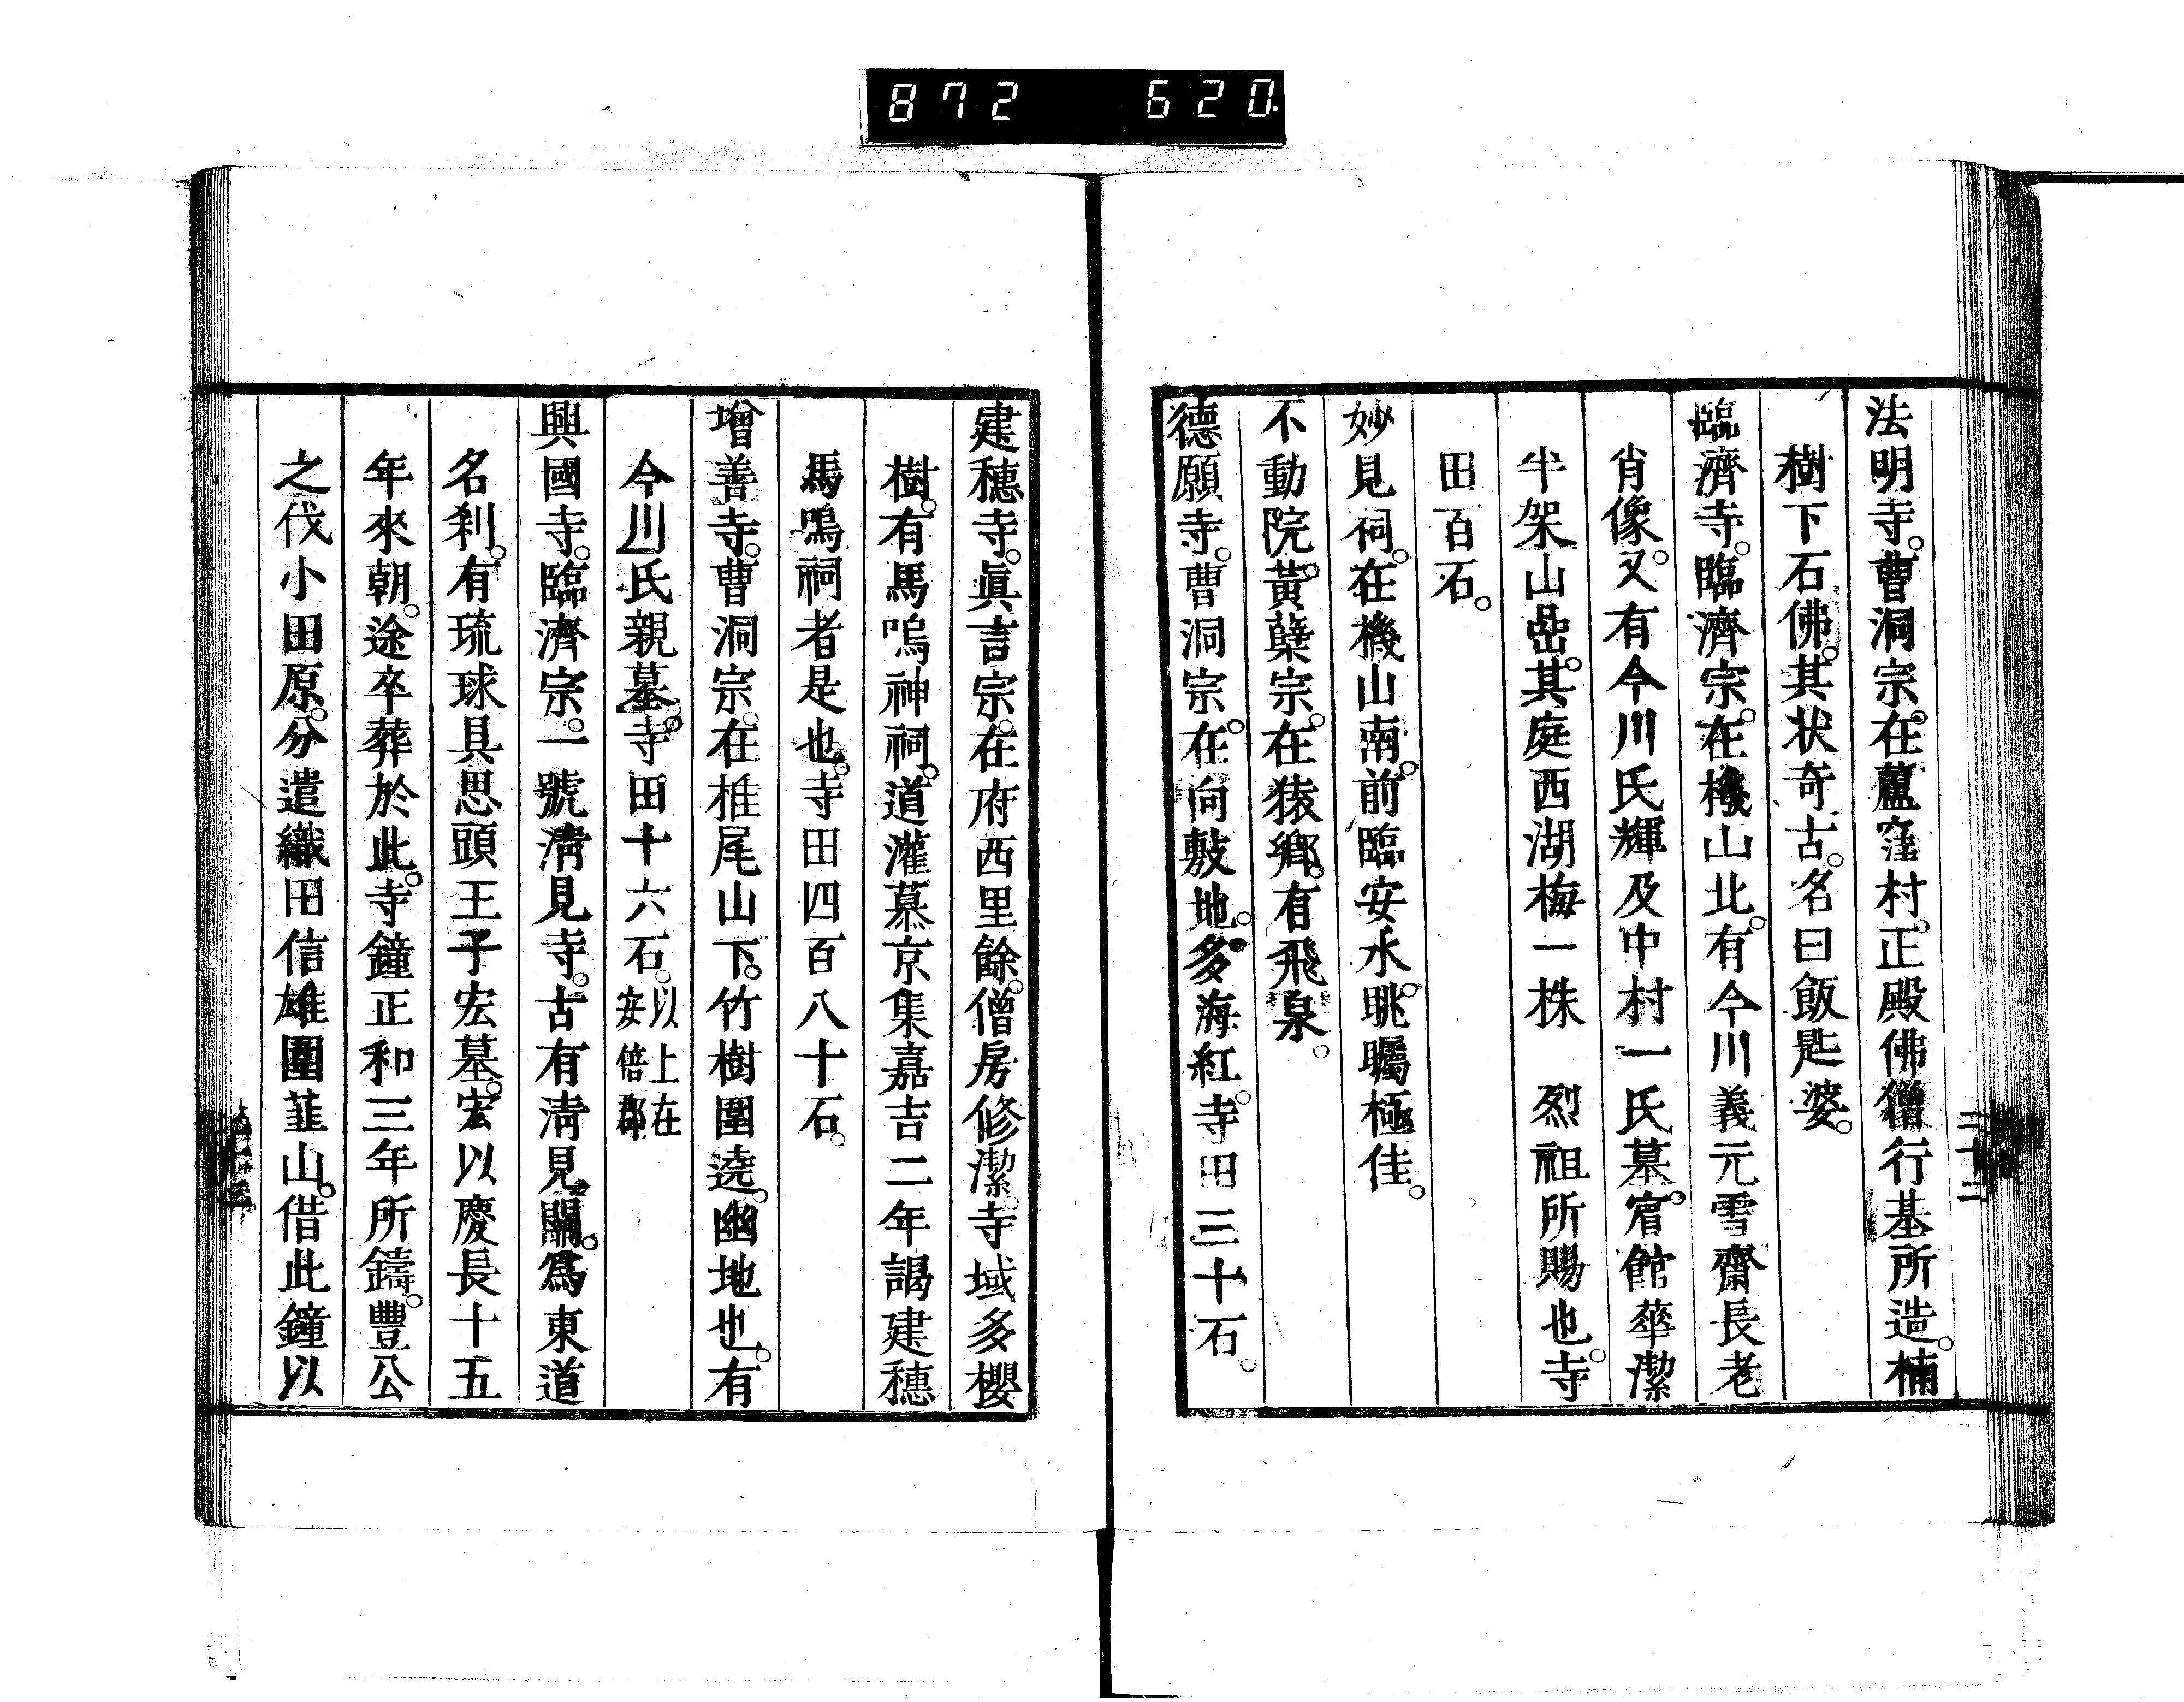 872 620
法明寺。曹洞宗。在蘆窪村。正殿佛僧行基所造。楠
樹下石佛。其状奇古。名曰飯匙婆。
臨濟寺。臨濟宗。在機山北。有今川義元雪齋長老
肖像。又有今川氏輝及中村一氏墓。宿館華潔
半架山嵒。其庭西湖梅一株 烈祖所賜也。寺
田百石。
妙見祠。在機山南。前臨安水。眺矚極佳。
不動院。黃蘗宗。在猿鄉。有飛泉。
德願寺。曹洞宗。在向敷地。多海紅。寺田三十石。
建穗寺。眞言宗。在府西里餘。僧房修潔。寺域多櫻
樹。有馬鳴神祠。道灌慕京集嘉吉二年謁建穗
馬鳴祠者是也。寺田四百八十石。
增善寺。曹洞宗。在椎尾山下。竹樹圍遶。幽地也。有
今川氏親墓。寺田十六石。以上在安倍郡
興國寺。臨濟宗。一號淸見寺。古有淸見關。爲東道
名刹。有琉球具思頭王子宏墓。宏以慶長十五
年來朝。途卒葬於此。寺鐘正和三年所鑄。豐公
之伐小田原。分遣織田信雄圍韮山。借此鐘以